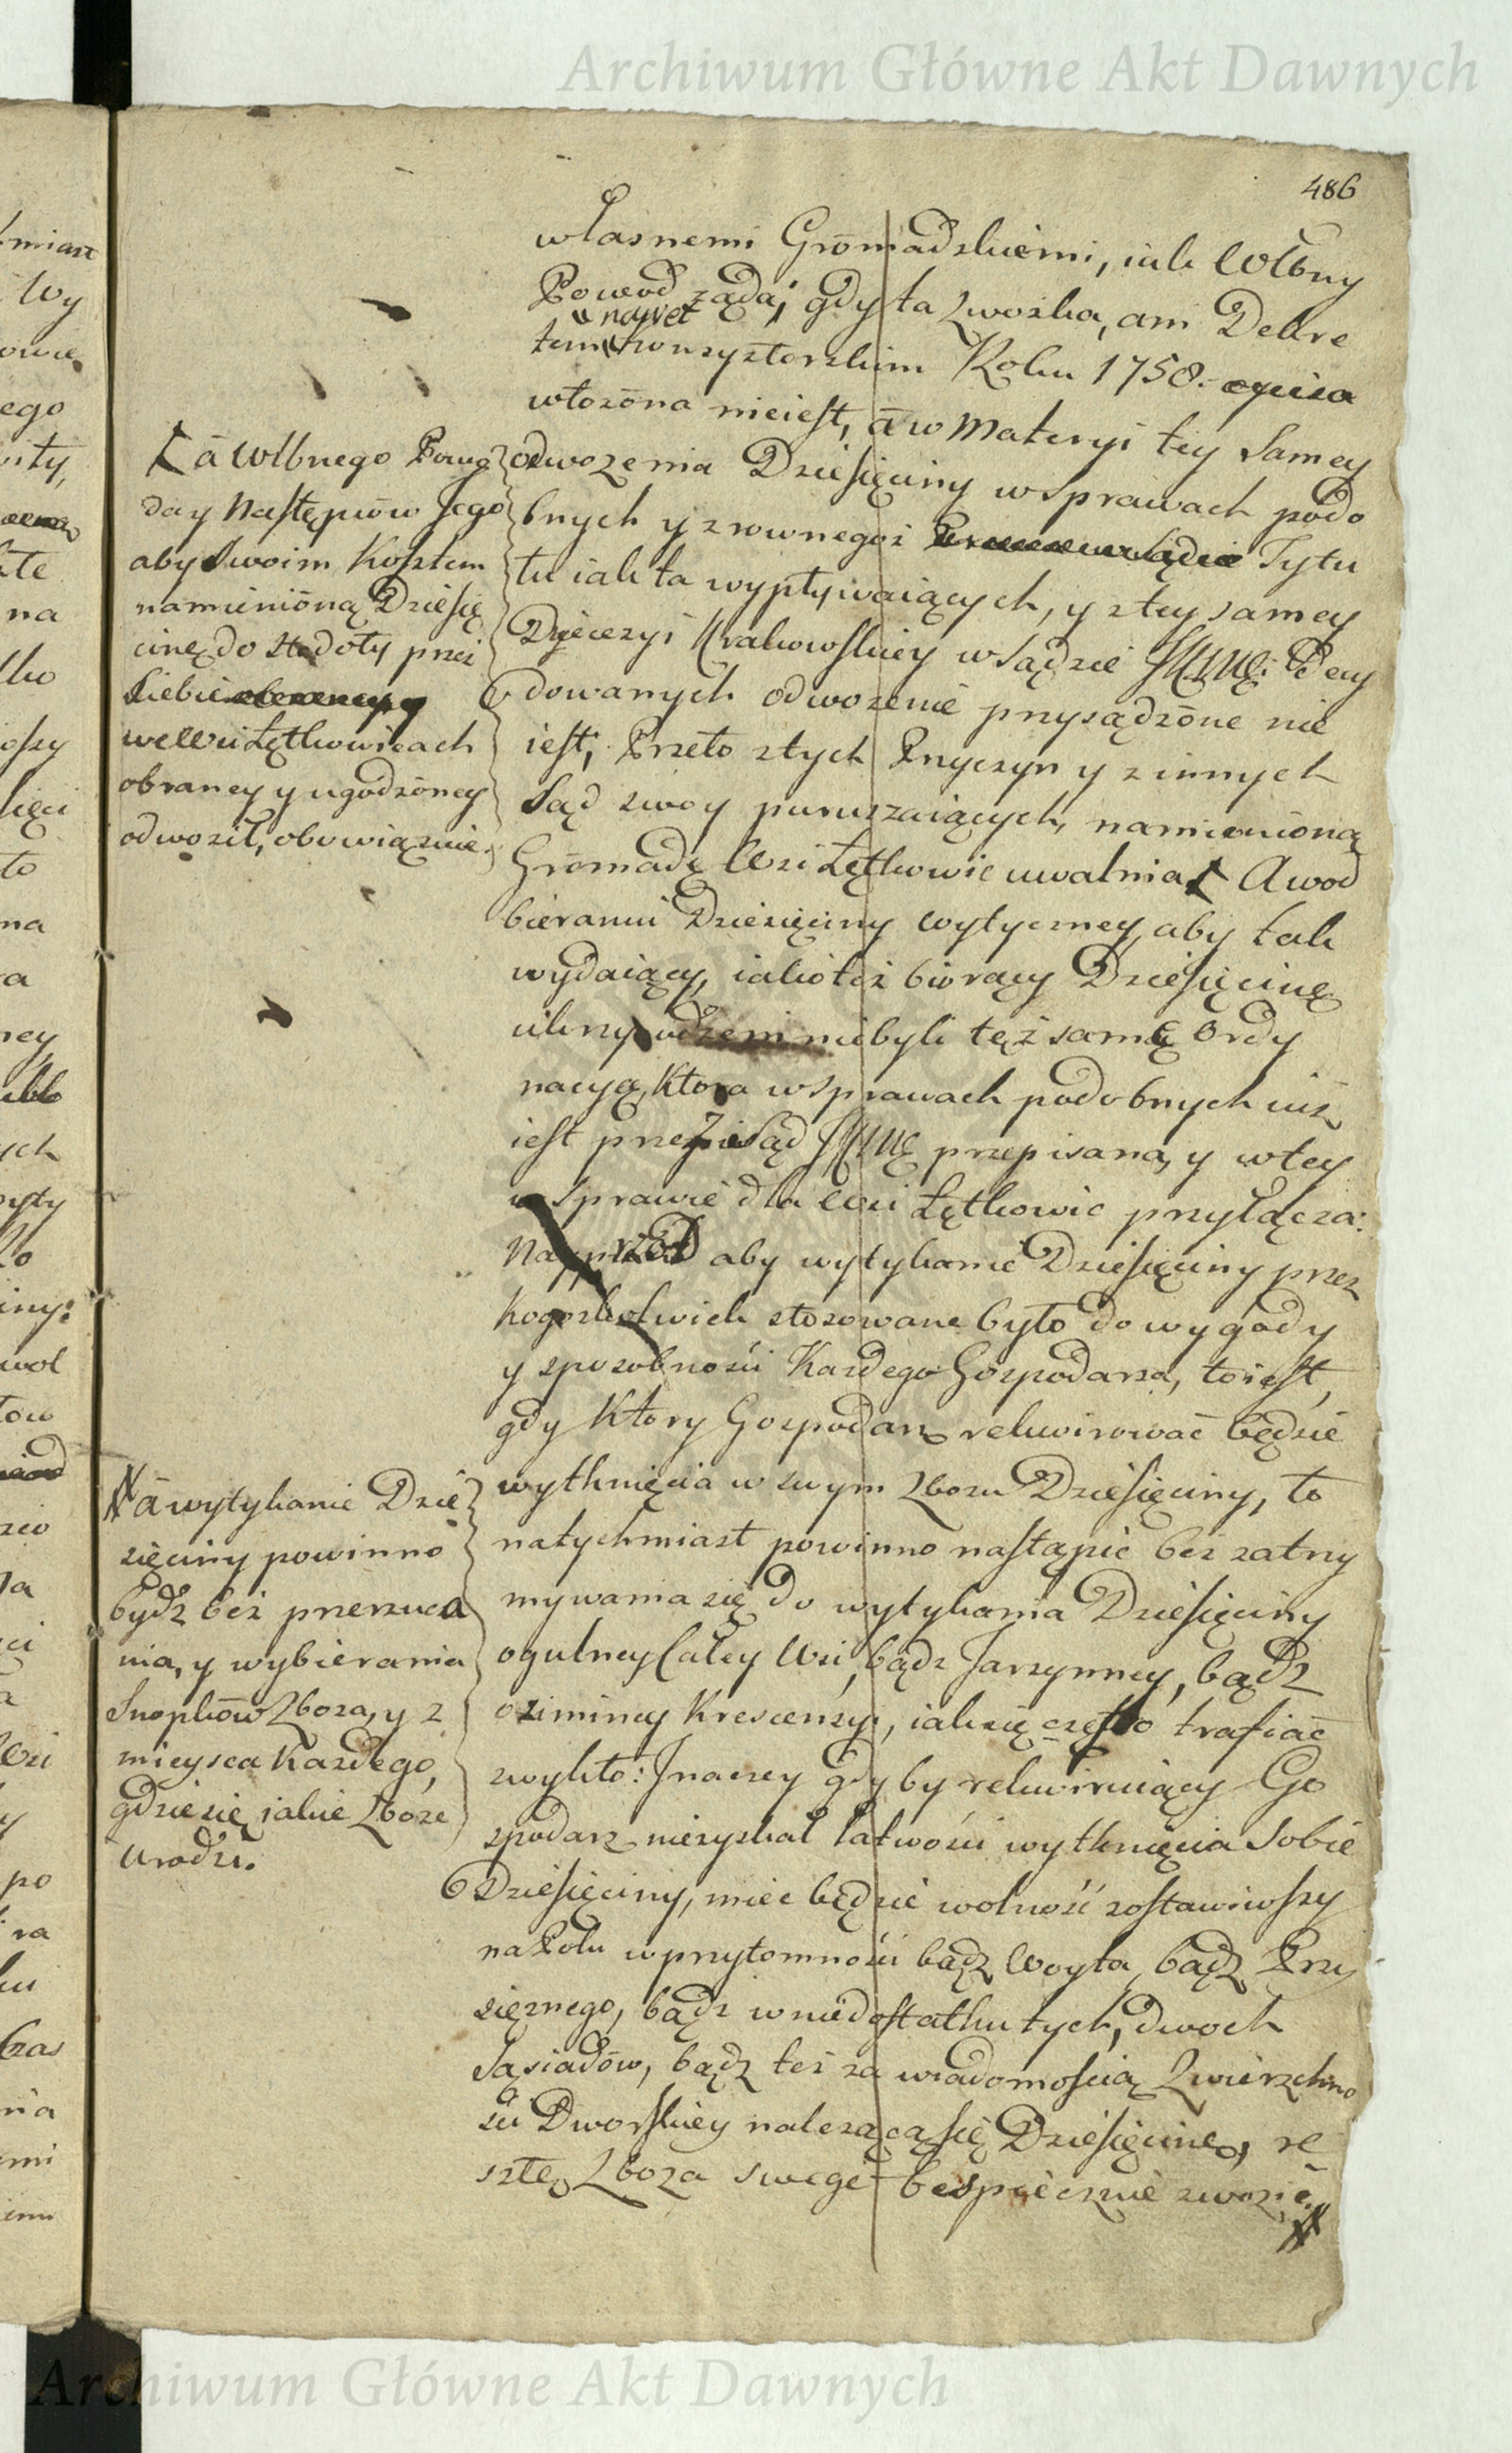 Archiwum Główne Akt Dawnych
486
własnemi Gromadzkiemi, iak Wlbny
Powod ząda; gdy ta zwoska, ani Dekre
nawet
tem konsystorskim Roku 1758.
włozōna nieiest, ā w materyi tey samey
odwozenia Dziesięciny w sprawach podo
bnych y z rownegoż Tytu
łu iak ta wypływaiących, y z tey samey
Dyecezyi Krakowskiey w Sądzie
dowanych odwozenie przysądzōne nie
iest; Przeto z tych Przyczyn y z innych
Sąd swoy poruszaiących, namienioną
Gromadę Wsi Łętkowic uwalnia A w od
bieraniu Dziesięciny wytyczney, aby tak
wydaiący, iako też biorący Dziesięcinę
ukrzywdzeni niebyli tęż samą ordy
nacyą, ktora w sprawach podobnych iuż
iest przez Sąd przepisana, y w tey
sprawie dla Wsi Łętkowic przyłącza:
Nayprzod aby wytykanie Dziesięciny przez
kogozkolwiek stosowane było do wygody
y sposobnosci kazdego Gospodarza, to iest,
gdy ktory Gospodarz rekwirować będzie
wytknięcia w swym zbozu Dziesięciny, to
natychmiast powinno nastąpić bez zatrzy
mywania się do wytykania Dziesięciny
ogulney Całey Wsi, bądz Jarzynney, bądz
oziminey krescencyi, iak się często trafiać
zwykło: Jnaczey gdyby rekwiruiący Go
spodarz niezyskał łatwości wytknięcia sobie
Dziesięciny, miec będzie wolność zostawiwszy
na Polu w przytomności bądz Woyta, bądz Przy
sięznego, bądz w niedostatku tych, dwoch
Sąsiadōw, bądz też za wiadomością Zwierzchno
ści Dworskiey nalezącą się Dziesięcinę, re
sztę zboza swego bespiecznie zwozić.
ā Wlbnego Powo
da y Następcōw Jego
aby swoim kosztem
namieniōną Dziesię
cinę do stodoły przez
siebie
we Wsi Łętkowicach
obraney y ugodzōney
odwoził, obowiązuie.
ā wytykanie Dzie
sięciny powinno
bydz bez przerzuca
nia, y wybierania
Snopkōw Zboza, y z
mieysca kazdego,
gdzie się iakie Zboze
urodzi.
Archiwum Główne Akt Dawnych